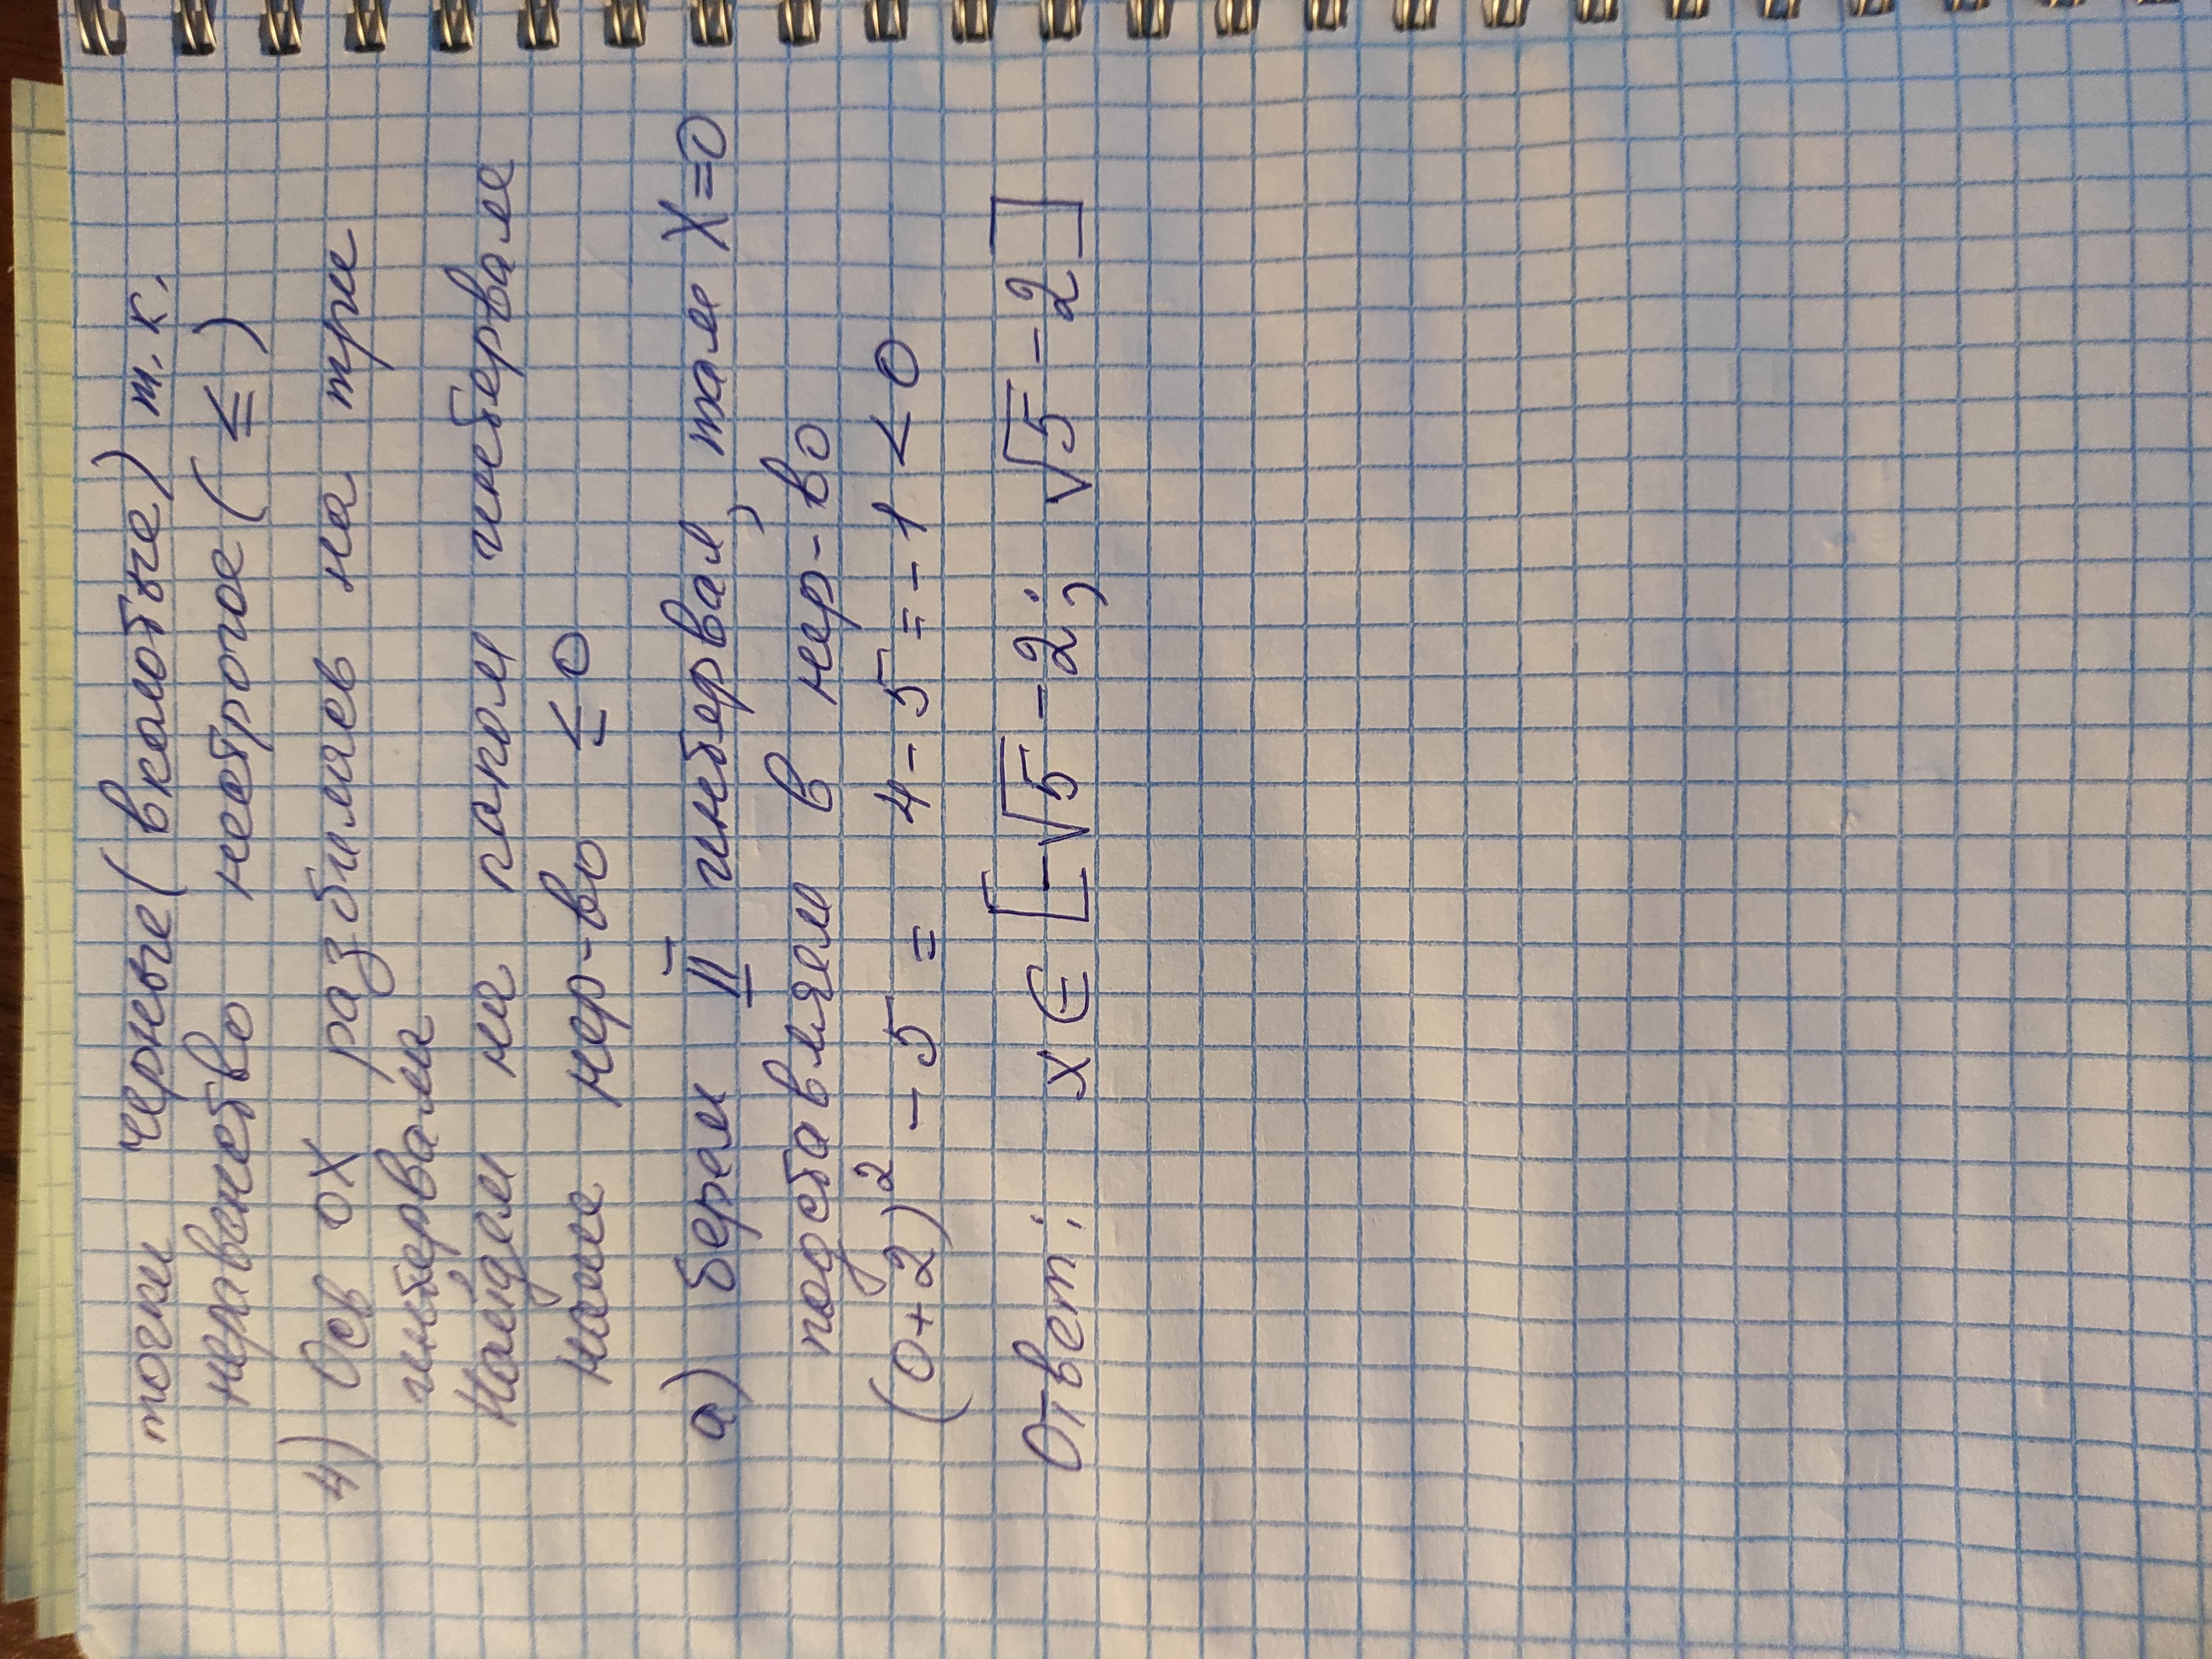 точки черные (вколотые) т.к.
неравенство нестрогое (≤)
4) Ось ОХ разбиляев на три
интервала
Найдем на каком интервале
наше нер-во ≤ 0
а) берем II интервал, там X=0
подставляем в нер-во
(0+2)² - 5 = 4-5 = -1 < 0
Ответ: x ∈ [-√5-2; √5-2]